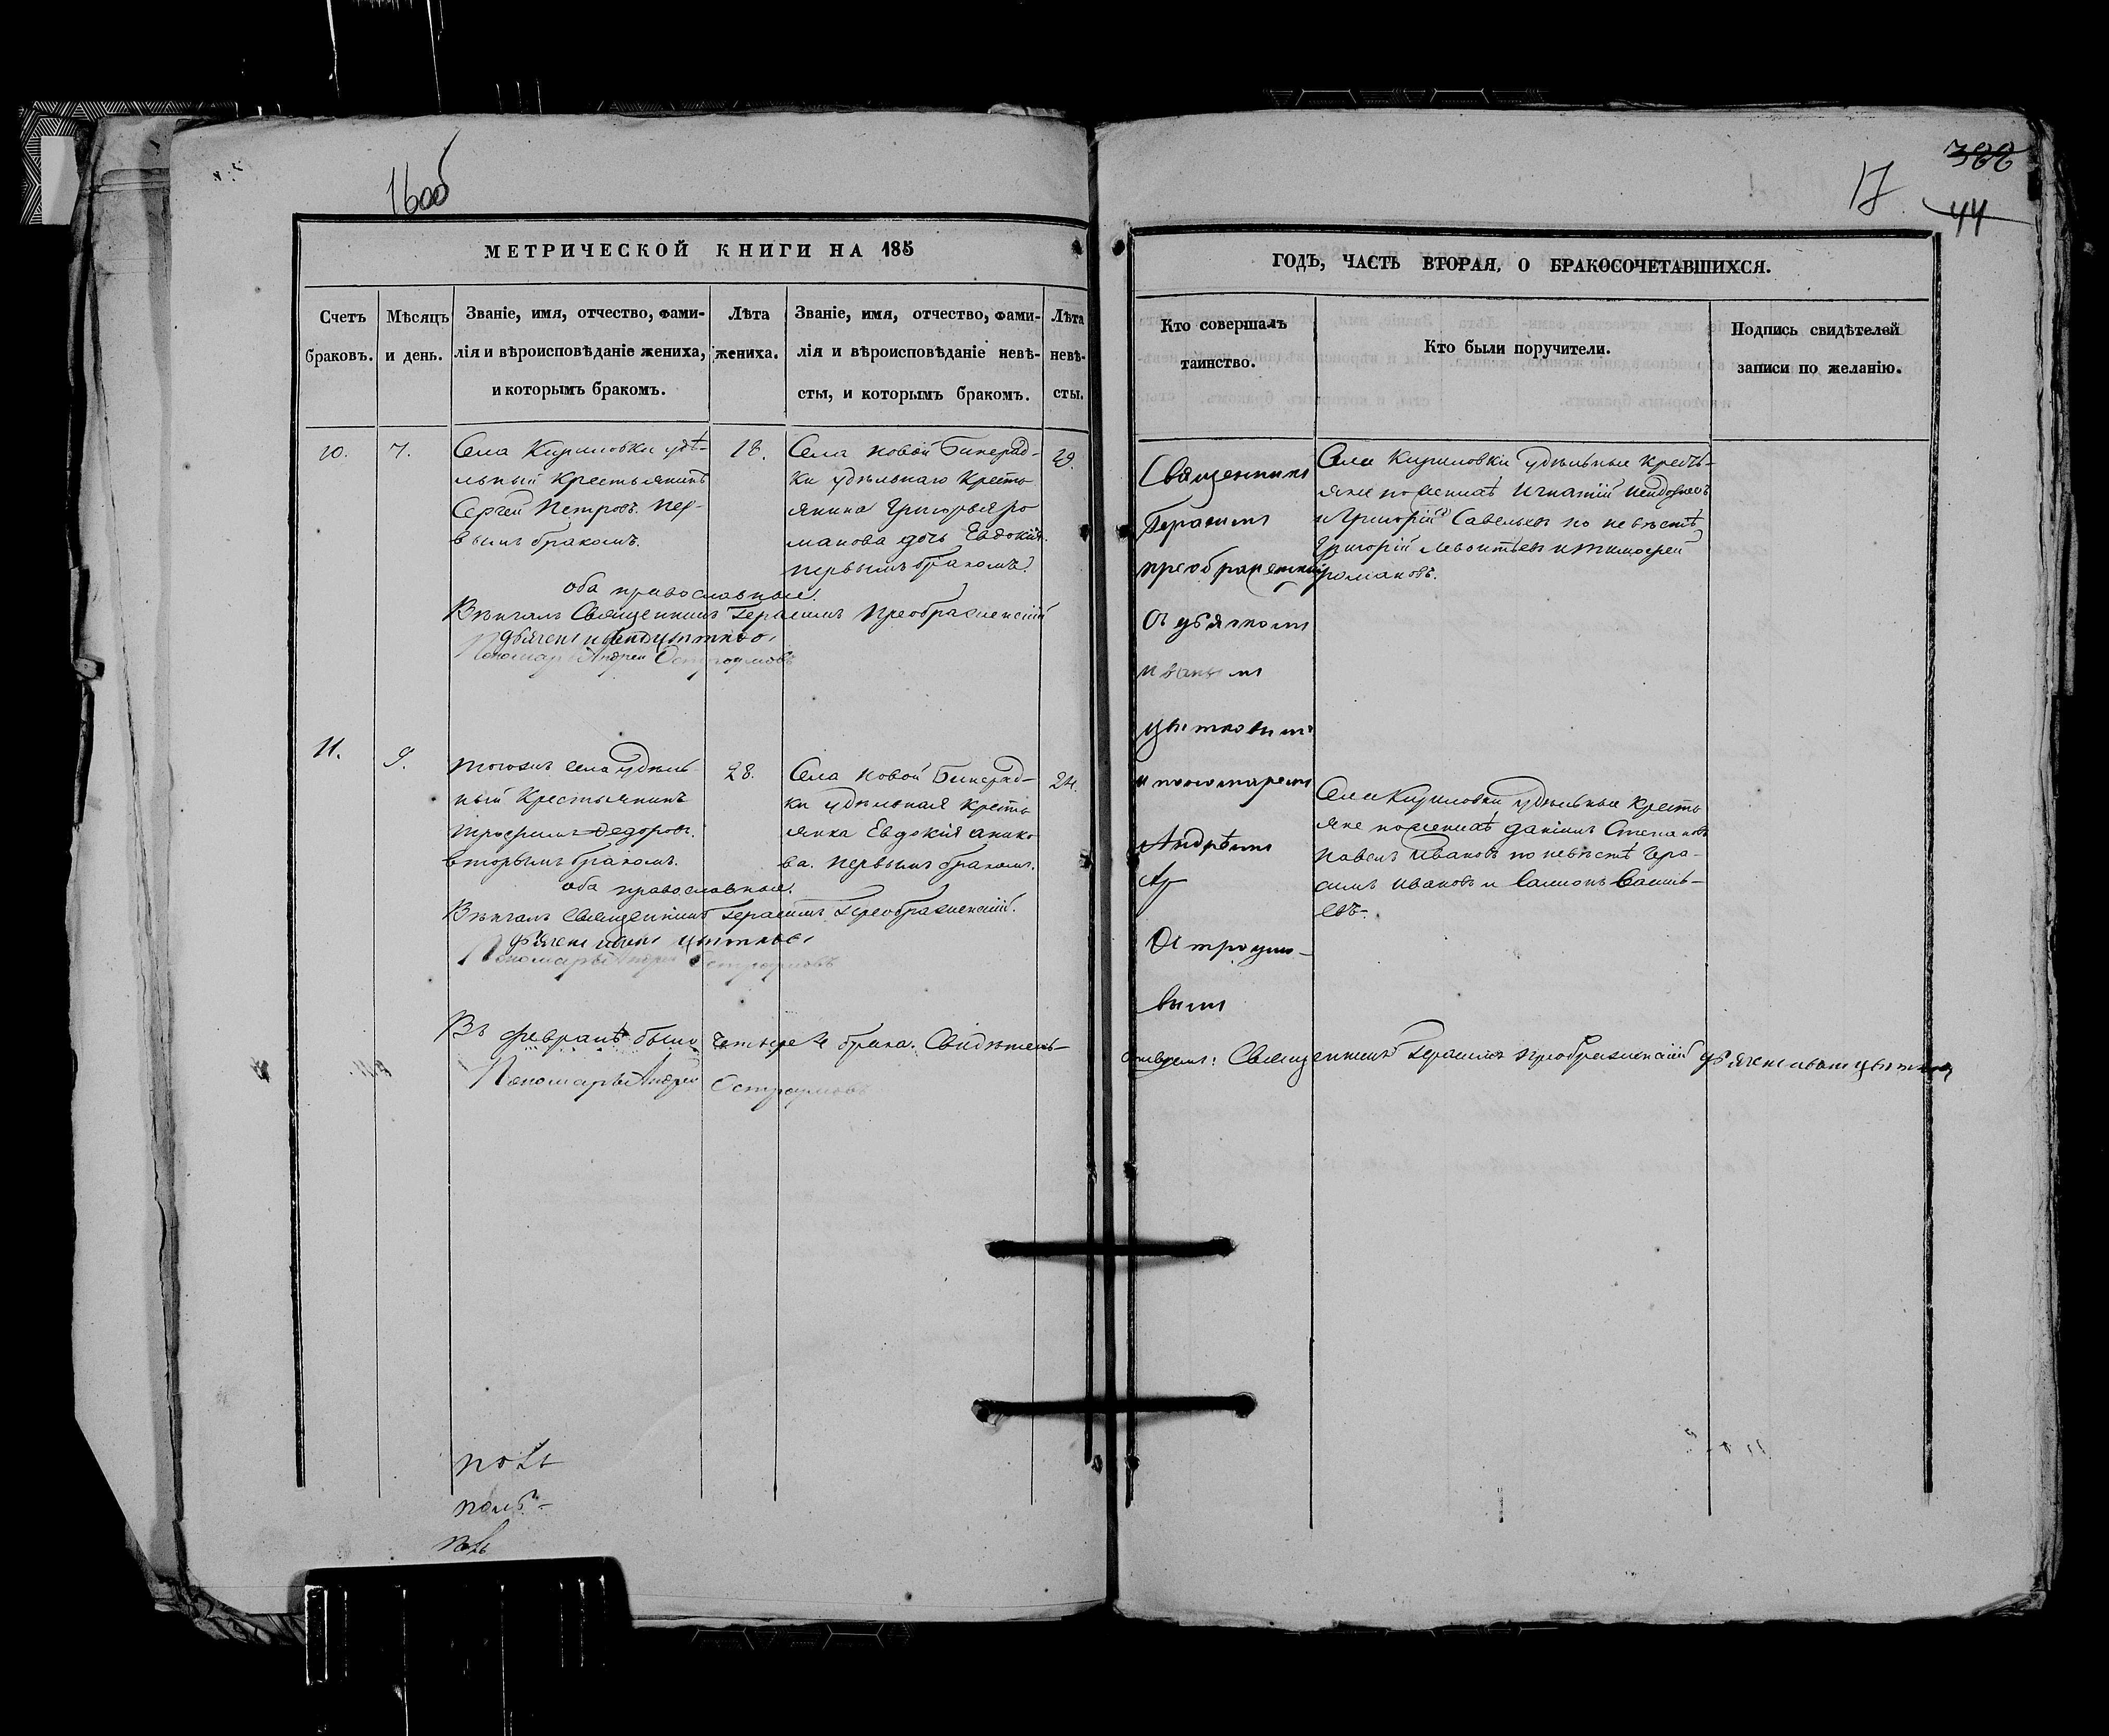 16об
МЕТРИЧЕСКОЙ КНИГИ НА 185
Счетъ браковъ.
Мѣсяцъ и день.
Званіе, имя, отчество, фами-
лія и вѣроисповѣданіе жениха,
и которымъ бракомъ.
Лѣта
жениха.
Званіе, имя, отчество, фами-
лія и вѣроисповѣданіе невѣ-
сты, и которымъ бракомъ.
Лѣта
невѣ-
сты.
10.
7.
Села Кириловки удѣ-
льный Крестьянинъ
Сергей Петровъ. пер-
вымъ бракомъ.
18.
Села новой Бинерад-
ки удѣльнаго Кресть
янина Григорья Ро
манова дочь Евдокія.
первымъ бракомъ.
оба православные.
Вѣнчалъ Священникъ Герасимъ Преображенскій
дьячекъ Иванъ Цвѣтковъ
Пономарь Андрей Остроумовъ
11.
9.
тогожъ села удѣль
ный Крестьянинъ
Трофимъ Федоровъ.
вторымъ бракомъ.
28.
Села новой Бинерад-
ки удѣльная Кресть
янка Евдокія Анико
ва. первымъ бракомъ.
24.
оба православные.
Вѣнчалъ Священникъ Герасимъ Преображенскій.
дьячекъ Иванъ Цвѣтковъ
Пономарь Андрей Остроумовъ
Въ февралѣ было четыре 4 брака. Свидѣтель-
Пономарь Андрей Остроумовъ
388
17
44
ГОДЪ, ЧАСТЬ ВТОРАЯ, О БРАКОСОЧЕТАВШИХСЯ.
Кто совершалъ
таинство.
Кто были поручители.
Подпись свидѣтелей
записи по желанію.
Священникъ
Герасимъ
преображенский
съ дьячкомъ
иваномъ
цвѣтковымъ
и пономаремъ
Андрѣемъ
Остроумо-
вымъ
Села Кириловки удѣльные Кресть-
яне по женихѣ Игнатій
и Григорій Савельевъ по невѣстѣ
Григорій Леонтьевъ и Тимофей
романовъ.
Села Кириловки удѣльные Кресть
яне по женихѣ даніилъ Степановъ
павелъ Ивановъ по невѣстѣ Гера-
симъ Ивановъ и Самсонъ Василь-
евъ.
ствуемъ: Священникъ Герасимъ преображенскій дьячекъ иванъ цвѣтковъ